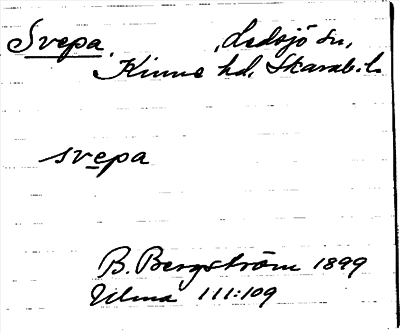 Svepa, Ledsjö sn,
Kinne hd, Skarab. l.
svepa
B. Bergström 1899
Ulma 111:109